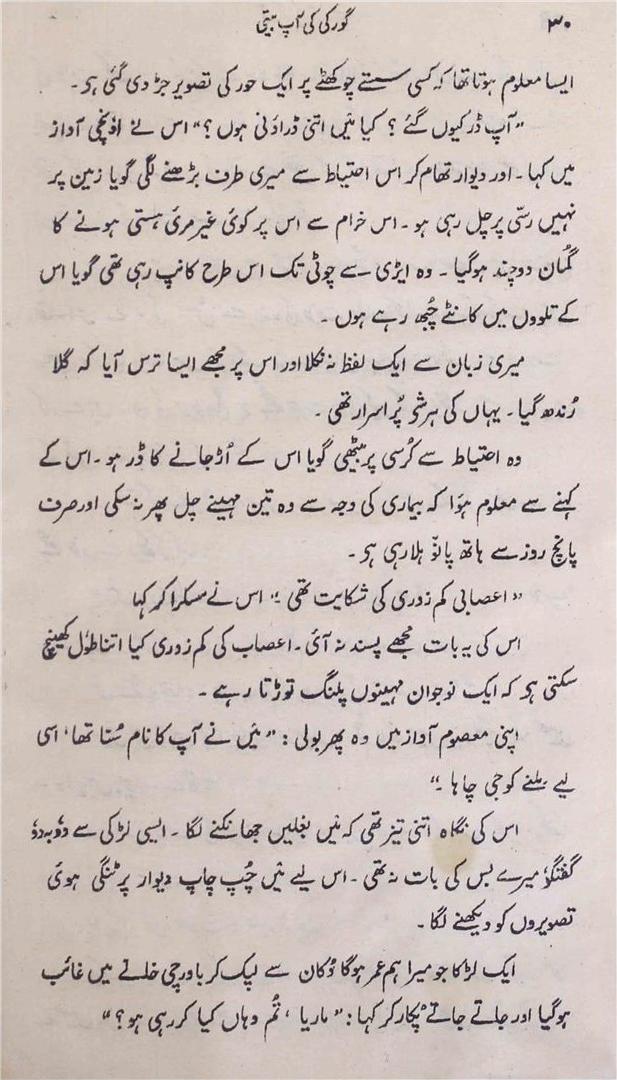 ۳۰
گورکی کی آپ بیتی
ایسا معلوم ہوتا تھا کہ کسی سستے چوکھٹے پر ایک حور کی تصویر جڑ دی گئی ہو۔
”آپ ڈر کیوں گئے؟ کیا مَیں اتنی ڈراونی ہوں؟“ اس نے اونچی آواز
میں کہا۔ اور دیوار تھام کر اس احتیاط سے میری طرف بڑھنے لگی گویا زمین پر
نہیں رسّی پر چل رہی ہو۔ اس خرام سے اس پر کوئی غیر مرئی ہستی ہونے کا
گُمان دوچند ہوگیا۔ وہ ایڑی سے چوٹی تک اس طرح کانپ رہی تھی گویا اس
کے تلووں میں کانٹے چُبھ رہے ہوں۔
میری زبان سے ایک لفظ نہ نکلا اور اس پر مجھے ایسا ترس آیا کہ گلا
رُندھ گیا۔ یہاں کی ہر شَو پُر اسرار تھی۔
وہ احتیاط سے کُرسی پر بیٹھی گویا اس کے اُڑ جانے کا ڈر ہو۔ اس کے
کہنے سے معلوم ہؤا کہ بیماری کی وجہ سے وہ تین مہینے چل پھر نہ سکی اور صرف
پانچ روز سے ہاتھ پانوَ ہلا رہی ہو۔
”اعصابی کم زوری کی شکایت تھی۔“ اس نے مسکرا کر کہا
اس کی یہ بات مجھے پسند نہ آئی۔ اعصاب کی کم زوری کیا اتنا طول کھینچ
سکتی ہو کہ ایک نوجوان مہینوں پلنگ توڑتا رہے۔
اپنی معصوم آواز میں وہ پھر بولی: ”مَیں نے آپ کا نام سُنا تھا، اسی
لیے ملنے کو جی چاہا۔“
اس کی نگاہ اتنی تیز تھی کہ مَیں بغلیں جھانکنے لگا۔ ایسی لڑکی سے دوٗبہ دوٗ
گفتگوٗ میرے بس کی بات نہ تھی۔ اس لیے مَیں چُپ چاپ دیوار پر ٹنگی ہوئی
تصویروں کو دیکھنے لگا۔
ایک لڑکا جو میرا ہم عمر ہوگا دُکان سے لپک کر باورچی خانے میں غائب
ہوگیا اور جاتے جاتے پُکار کر کہا: ”ماریا، تُم وہاں کیا کر رہی ہو؟“